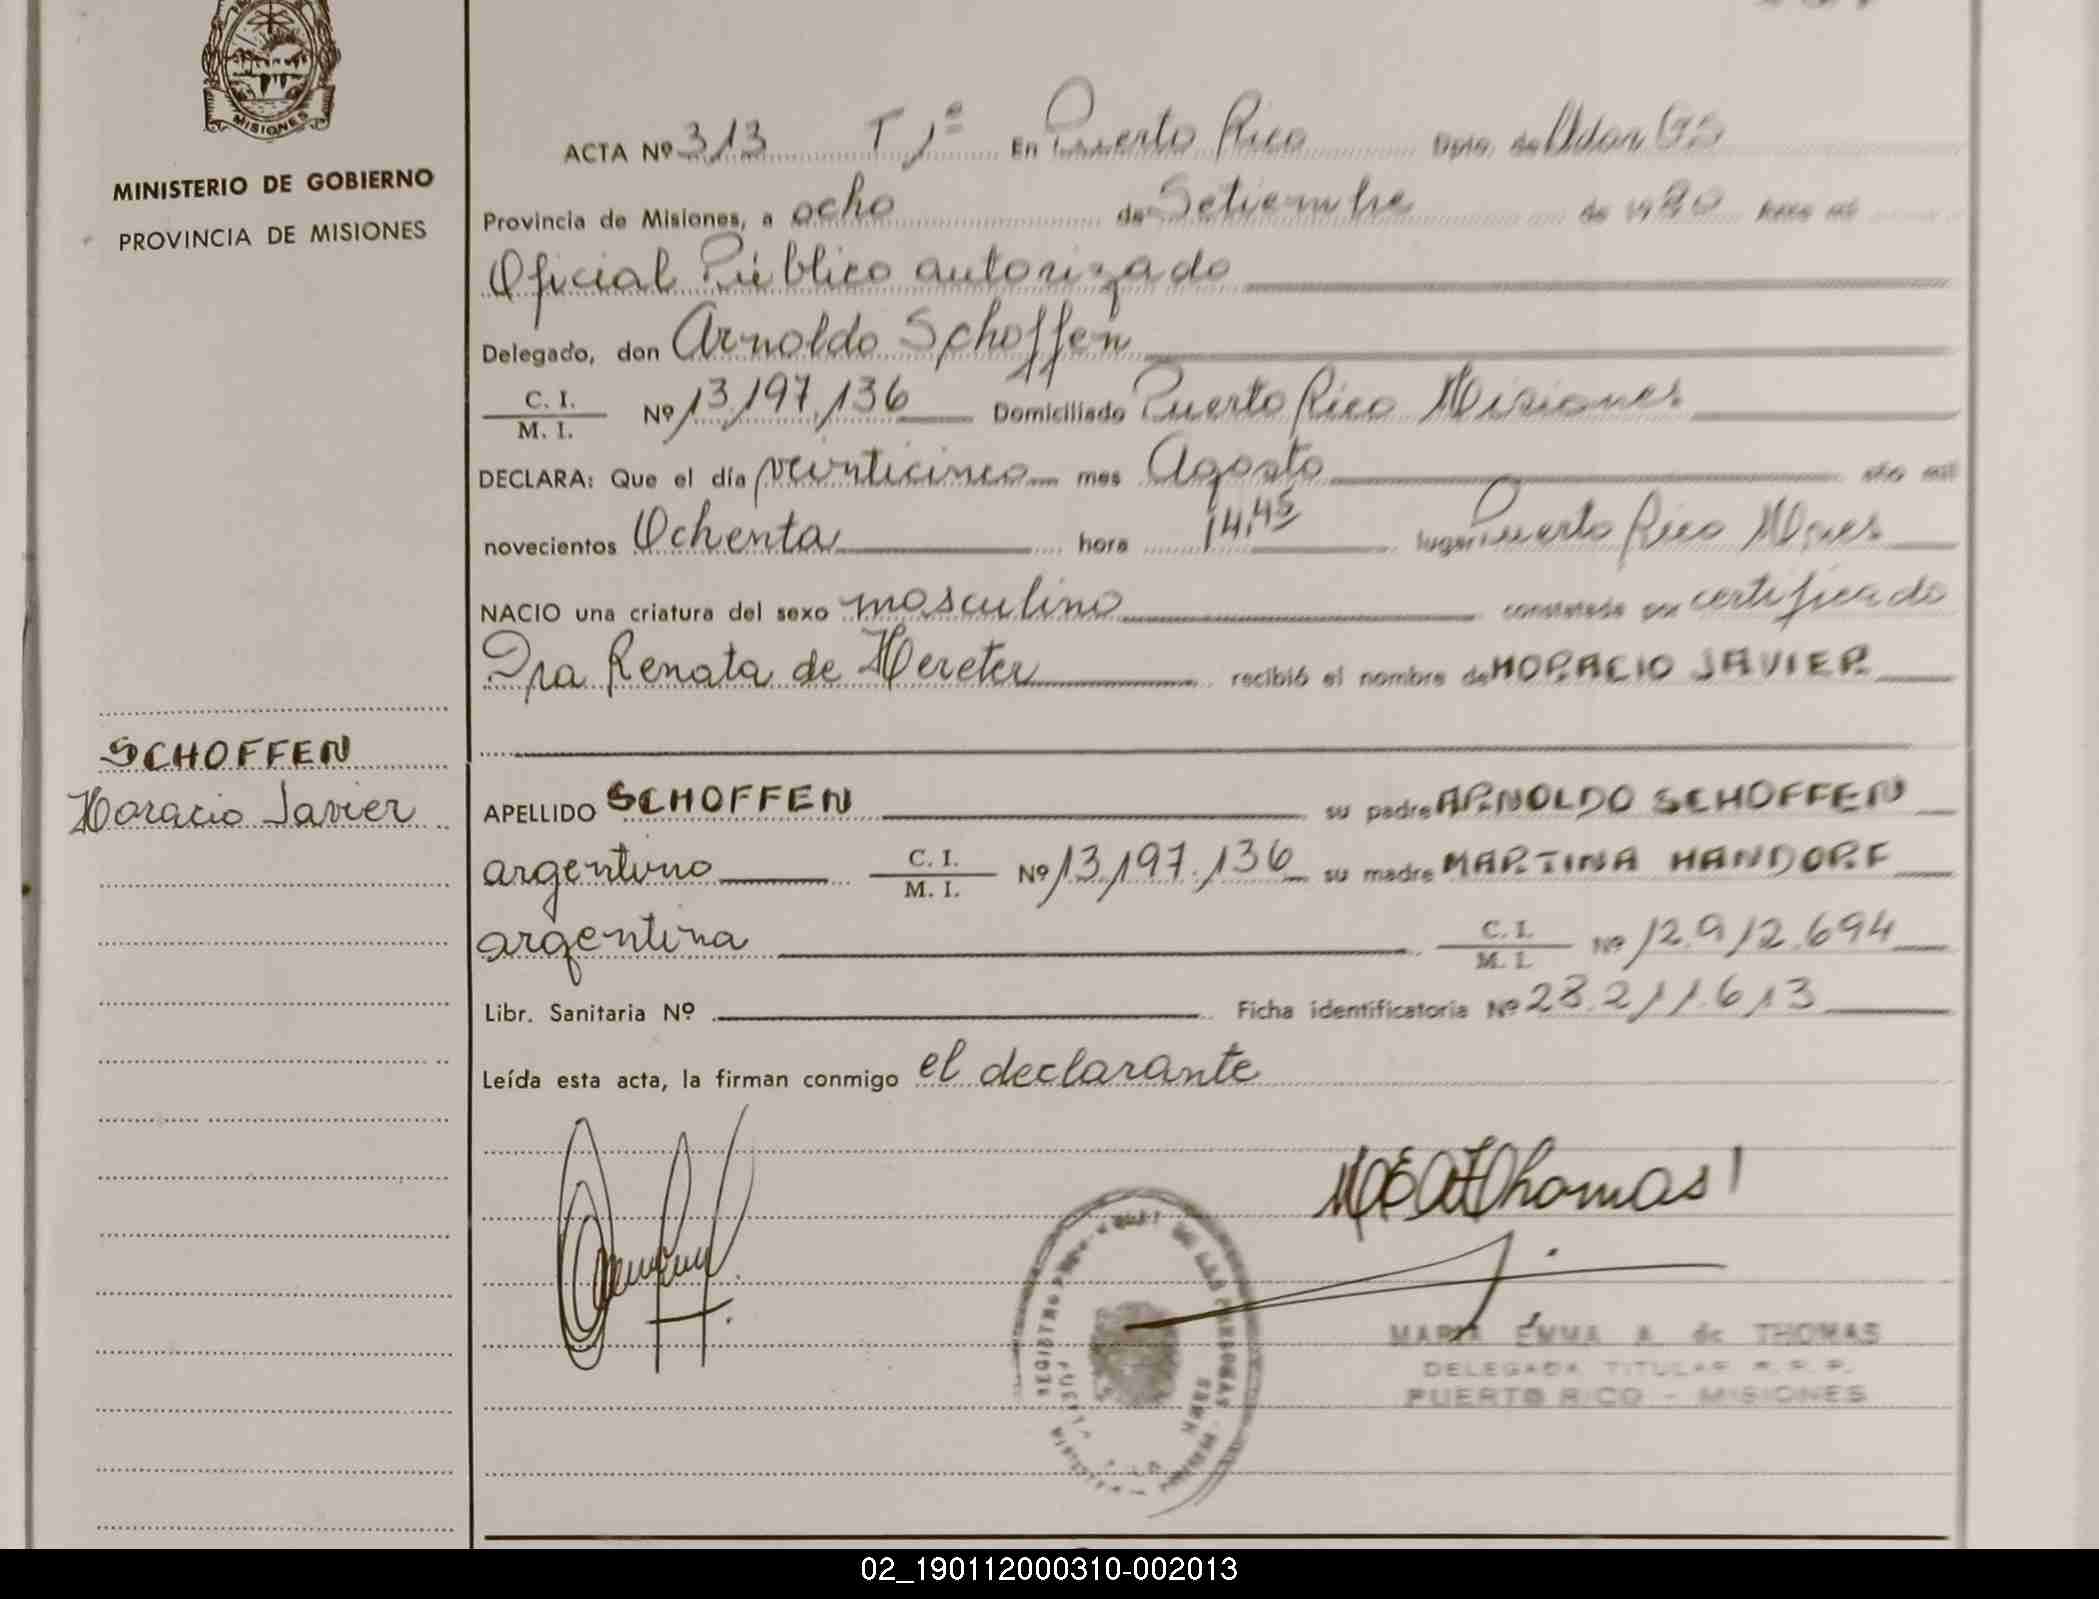 MISIONES
MINISTERIO DE GOBIERNO
PROVINCIA DE MISIONES
ACTA Nº 313 T 1º En Puerto Rico Dpto. de
Provincia de Misiones, a ocho de Setiembre de 1980 Ante mí
Oficial Público autorizado
Delegado, don Arnoldo Schoffen
C. I.
M. I. Nº 13.197.136 Domiciliado Puerto Rico Misiones
DECLARA: Que el día veinticinco mes Agosto año mil
novecientos Ochenta hora 14,45 lugar Puerto Rico Mnes
NACIO una criatura del sexo masculino constatada por certificado
Dra Renata de recibió el nombre de HORACIO JAVIER
SCHOFFEN
Horacio Javier
APELLIDO SCHOFFEN su padre ARNOLDO SCHOFFEN
argentino C. I.
M. I. Nº 13.197.136 su madre MARTINA HANDORF
argentina C. I.
M. I. Nº 12.912.694
Libr. Sanitaria Nº Ficha identificatoria Nº 28.211.613
Leída esta acta, la firman conmigo el declarante
Thomas
REGISTRO DE LAS PERSONAS
MARIA EMMA A. de THOMAS
DELEGADA TITULAR R. P. P.
PUERTO RICO - MISIONES
02_190112000310-002013